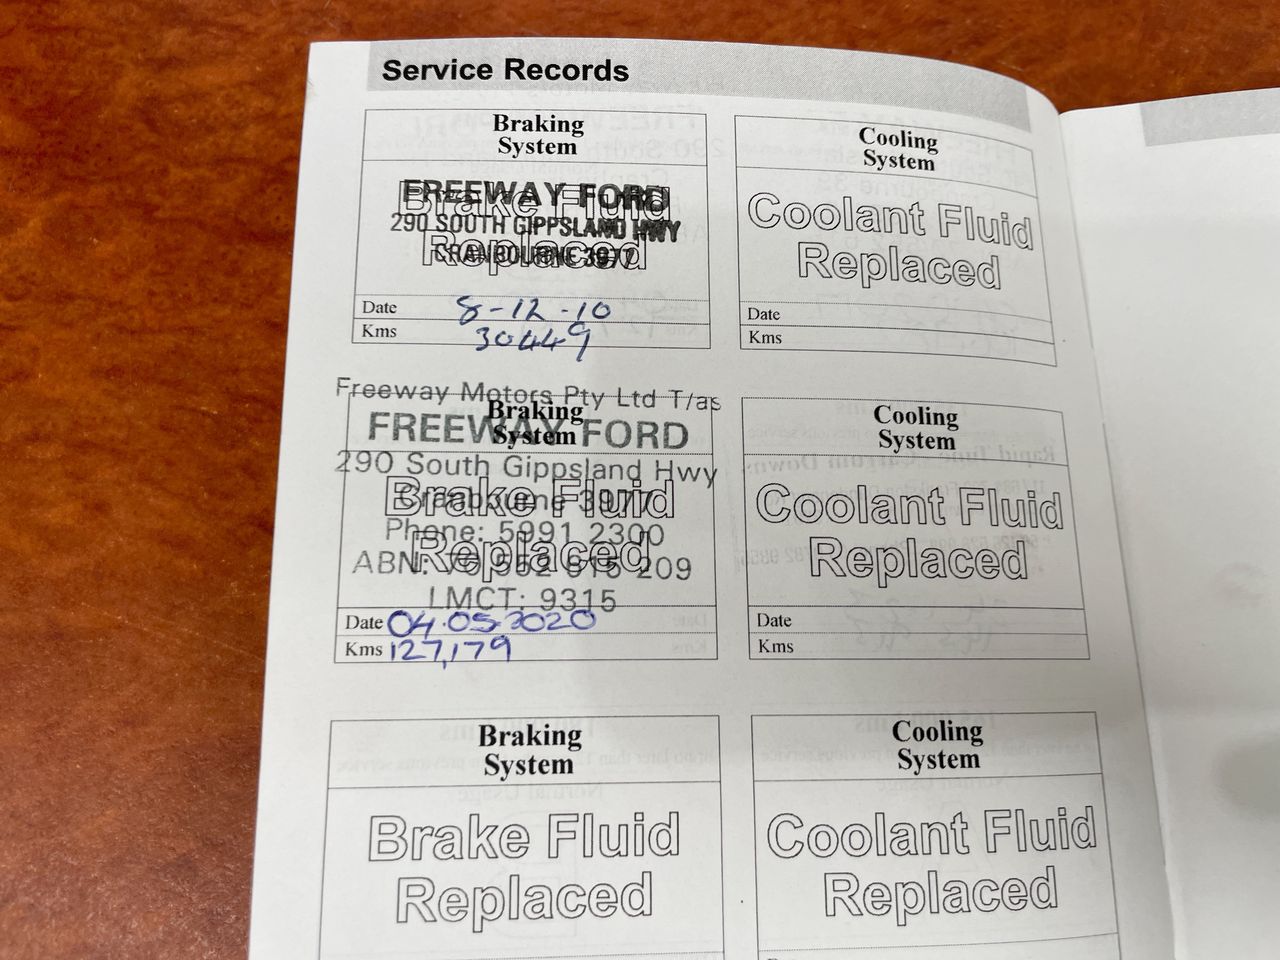 Service Records
Braking
System
FREEWAY FORD
290 SOUTH GIPPSLAND HWY
CRANBOURNE 3977
Brake Fluid
Replaced
Date 8-12-10
Kms 30449
Cooling
System
Coolant Fluid
Replaced
Date
Kms
Freeway Motors Pty Ltd T/as
Braking
System
FREEWAY FORD
290 South Gippsland Hwy
Cranbourne 3977
Brake Fluid
Phone: 5991 2300
Replaced
ABN: 209
LMCT: 9315
Date 04.05.2020
Kms 127,179
Cooling
System
Coolant Fluid
Replaced
Date
Kms
Braking
System
Brake Fluid
Replaced
Cooling
System
Coolant Fluid
Replaced